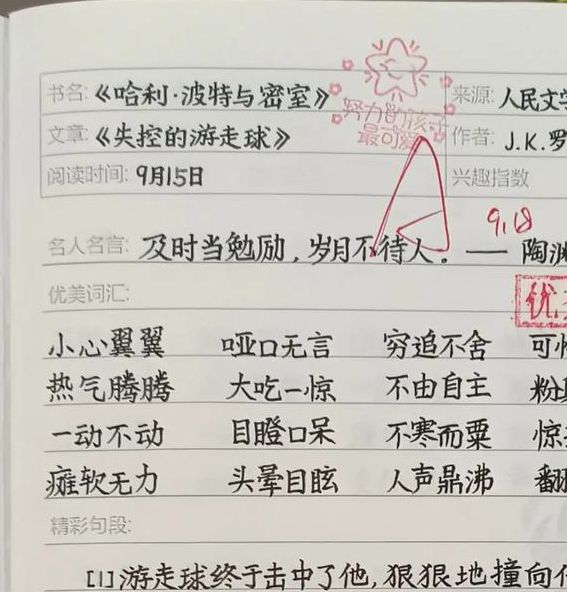 书名:《哈利·波特与密室》 来源: 人民文学
努力的孩子
最可爱
文章:《失控的游走球》 作者: J.K.罗
阅读时间: 9月15日 兴趣指数
A
9.18
名人名言: 及时当勉励,岁月不待人。——陶渊
优美词汇:
优
小心翼翼 哑口无言 穷追不舍 可
热气腾腾 大吃一惊 不由自主 粉
一动不动 目瞪口呆 不寒而粟 惊
瘫软无力 头晕目眩 人声鼎沸 翻
精彩句段:
[1]游走球终于击中了他,狠狠地撞向